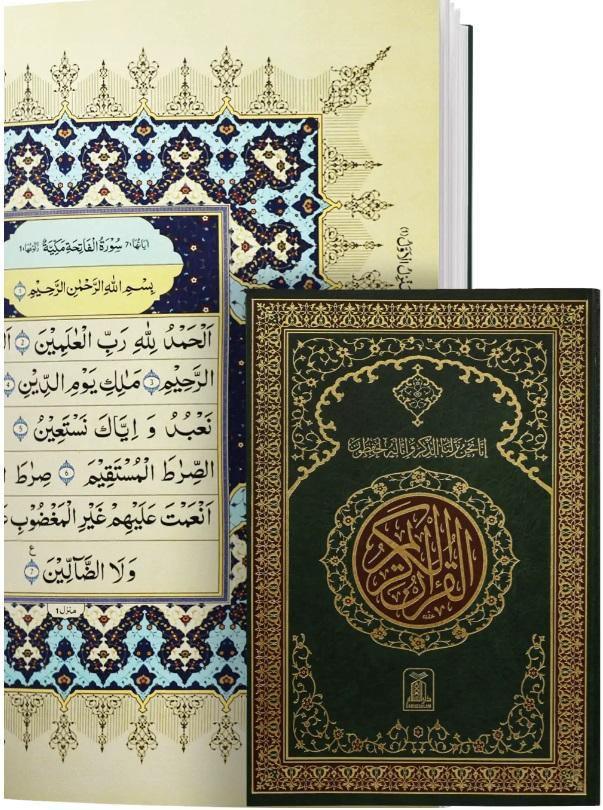 اٰيَاتُهَا ٧ سُوْرَةُ الْفَاتِحَةِ مَكِّيَّةٌ رُكُوْعُهَا ١
بِسْمِ اللّٰهِ الرَّحْمٰنِ الرَّحِيْمِ ١
اَلْحَمْدُ لِلّٰهِ رَبِّ الْعٰلَمِيْنَ ٢ ال
الرَّحِيْمِ ٣ مٰلِكِ يَوْمِ الدِّيْنِ ٤
نَعْبُدُ وَ اِيَّاكَ نَسْتَعِيْنُ ٥
الصِّرٰطَ الْمُسْتَقِيْمَ ٦ صِرٰطَ
اَنْعَمْتَ عَلَيْهِمْ غَيْرِ الْمَغْضُوْبِ
وَلَا الضَّآلِّيْنَ ٧
ع
منزل ١
إنا نحن نزلنا الذكر وإنا له لحفظون
القرآن الكريم
دار السلام